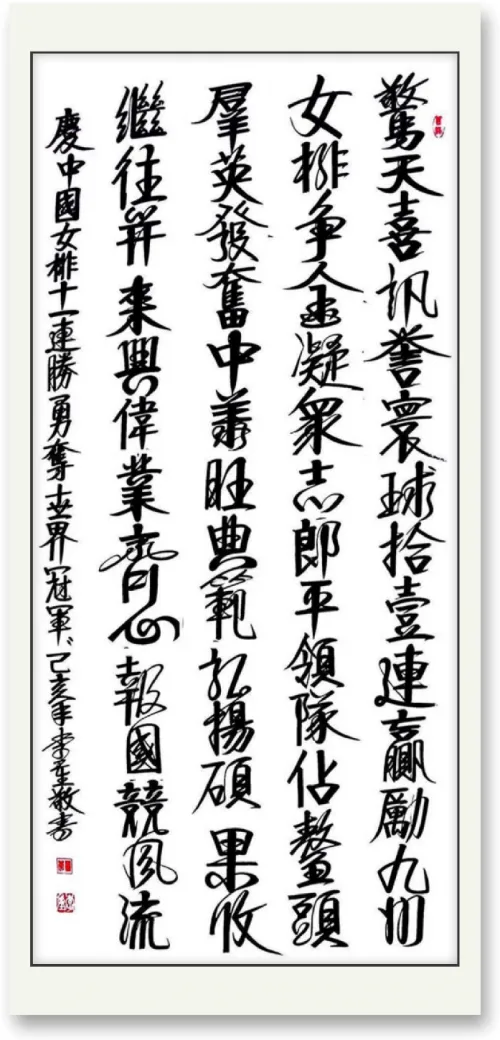 驚天喜訊譽寰球拾壹連贏勵九州
女排争金凝衆志郎平領隊佔鰲頭
羣英發奮中華旺典範弘揚碩果收
繼往開來興偉業齊心報國競風流
慶中國女排十一連勝勇奪十世界冠軍己亥年敬書